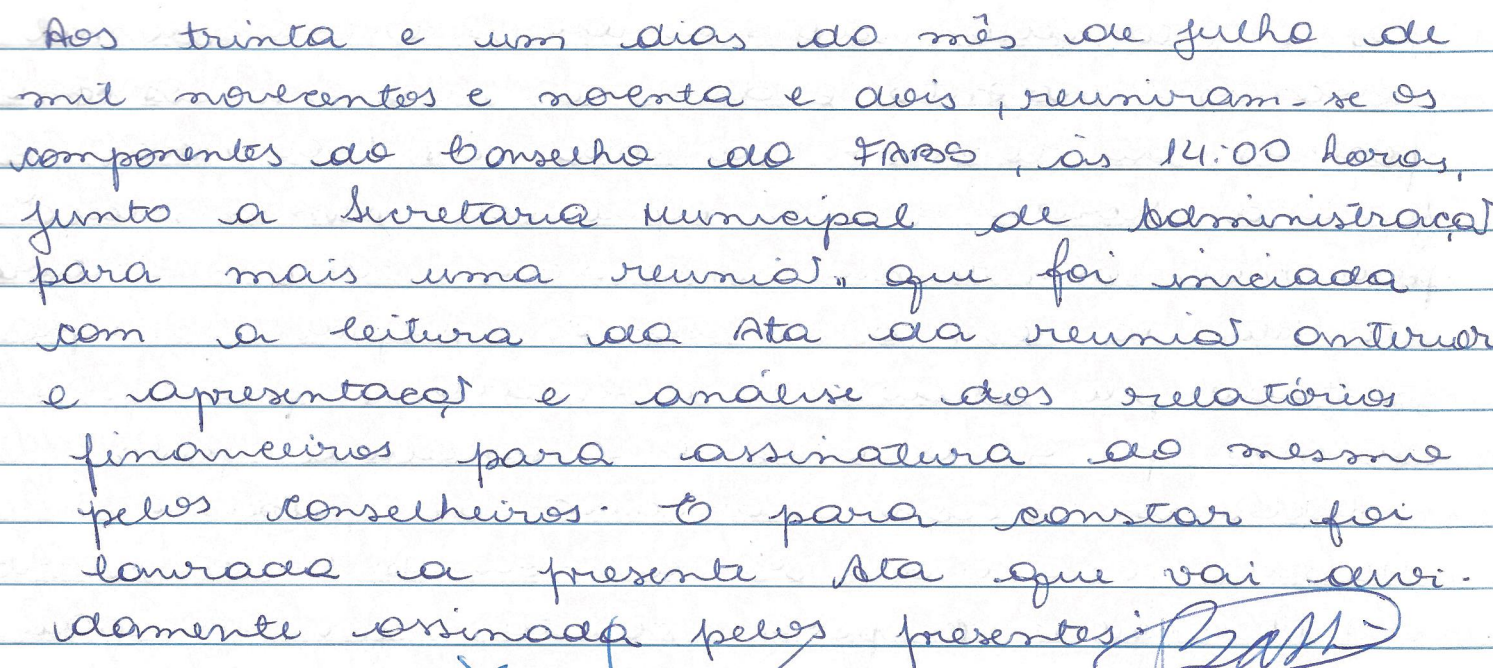 Aos trinta e um dias do mês de julho de
mil novecentos e noventa e dois, reuniram-se os
componentes do Conselho do FABS, às 14:00 horas,
junto a Secretaria Municipal de Administração
para mais uma reunião, que foi iniciada
com a leitura da Ata da reunião anterior
e apresentação e análise dos relatórios
financeiros para assinatura do mesmo
pelos conselheiros. E para constar foi
lavrada a presente Ata que vai devi-
damente assinada pelos presentes: